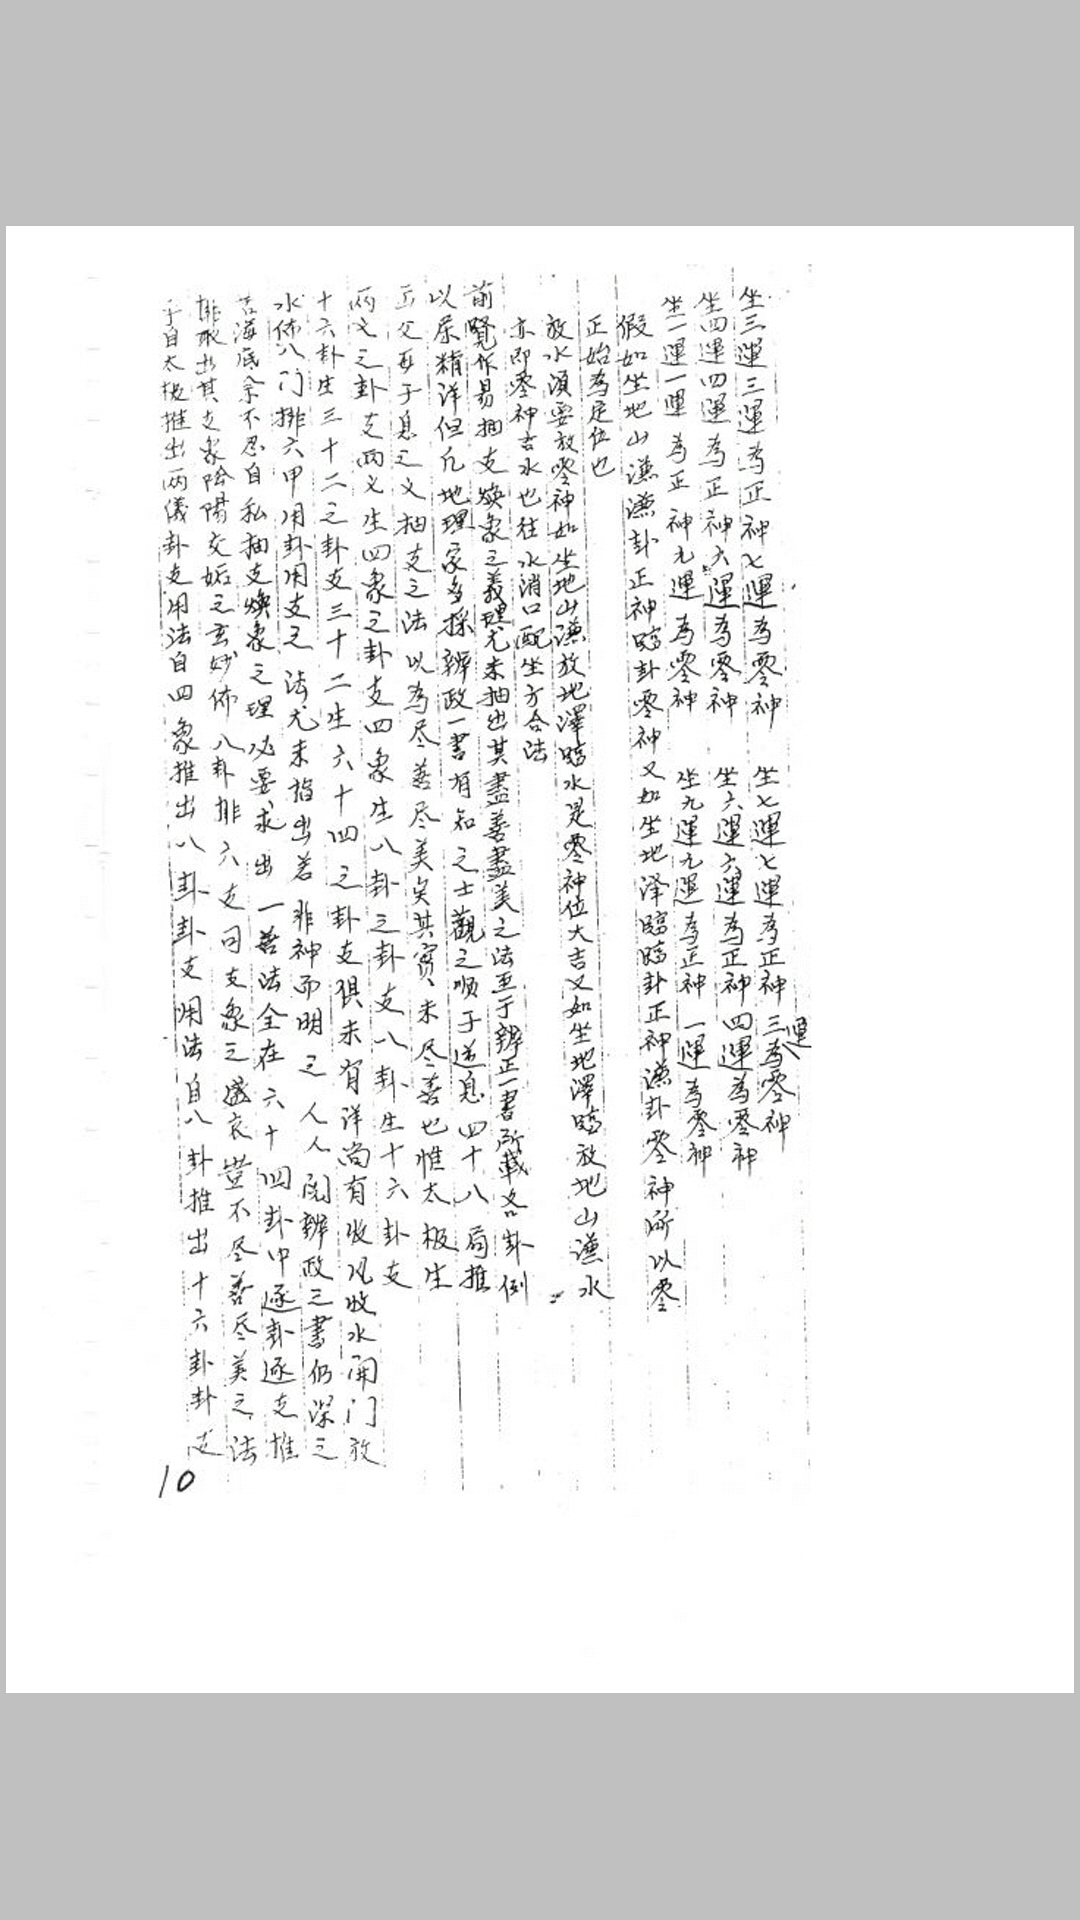 坐三運三運為正神七運為零神　坐七運七運為正神三運為零神
坐四運四運為正神六運為零神　坐六運六運為正神四運為零神
坐一運一運為正神九運為零神　坐九運九運為正神一運為零神
假如坐地山謙謙卦正神臨卦零神又如坐地泽臨臨卦正神謙卦零神所以零
正始為定位也
放水須要放零神如坐地山謙放地澤臨水是零神位大吉又如坐地澤臨放地山謙水
亦即零神吉水也往水消口配坐方合法
前覽作易抽支煥象之義理尤未抽出其盡善盡美之法至于辨正一書所載各卦例
以屎精详但凢地理家多採辨政一書有知之士觀之顺于逆息四十八局推
正父再于息之义抽支之法以為尽善尽美矣其實未尽善也惟太极生
两义之卦支两义生四象之卦支四象生八卦之卦支八卦生十六卦支
十六卦生三十二之卦支三十二生六十四之卦支俱未有详尚有收凡收水开门放
水佈八门排六甲用卦用支之法尤未指出若非神而明之人人閱辨政三書仍深之
苦海底余不忍自私抽支煥象之理必要求出一善法全在六十四卦中逐卦逐支推
排取出其支象阴陽交姤之玄妙佈八卦排六支司支象之盛衣豈不尽善尽美之法
于自太极推出两儀卦支用法自四象推出八卦卦支用法自八卦推出十六卦卦支
10